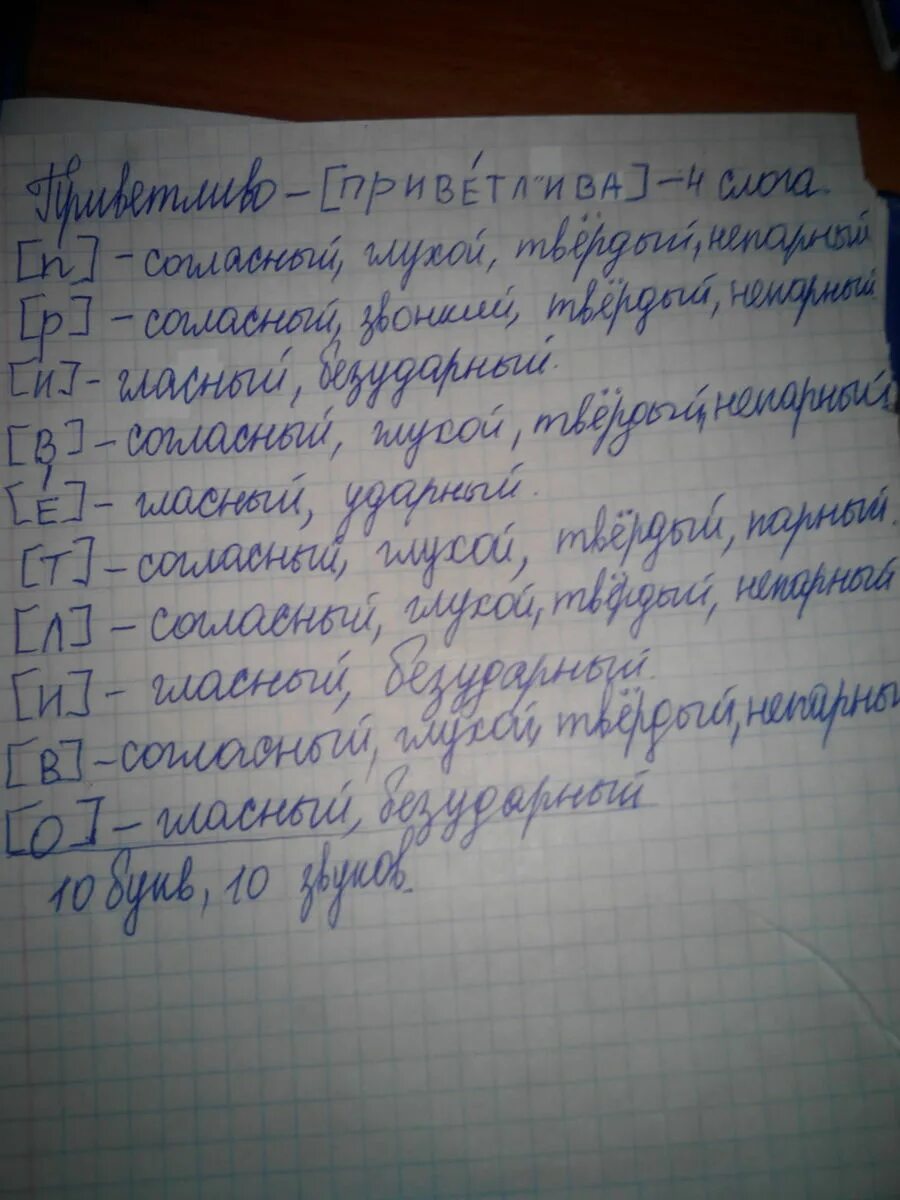 Приветливо – [ПРИВЕ́ТЛ"ИВА] – 4 слога.
[п] – согласный, глухой, твёрдый, непарный
[р] – согласный, звонкий, твёрдый, непарный
[и] – гласный, безударный.
[в] – согласный, глухой, твёрдый, непарный
[е́] – гласный, ударный.
[т] – согласный, глухой, твёрдый, парный.
[л] – согласный, глухой, твёрдый, непарный
[и] – гласный, безударный.
[в] – согласный, глухой, твёрдый, непарны
[о] – гласный, безударный
10 букв, 10 звуков.